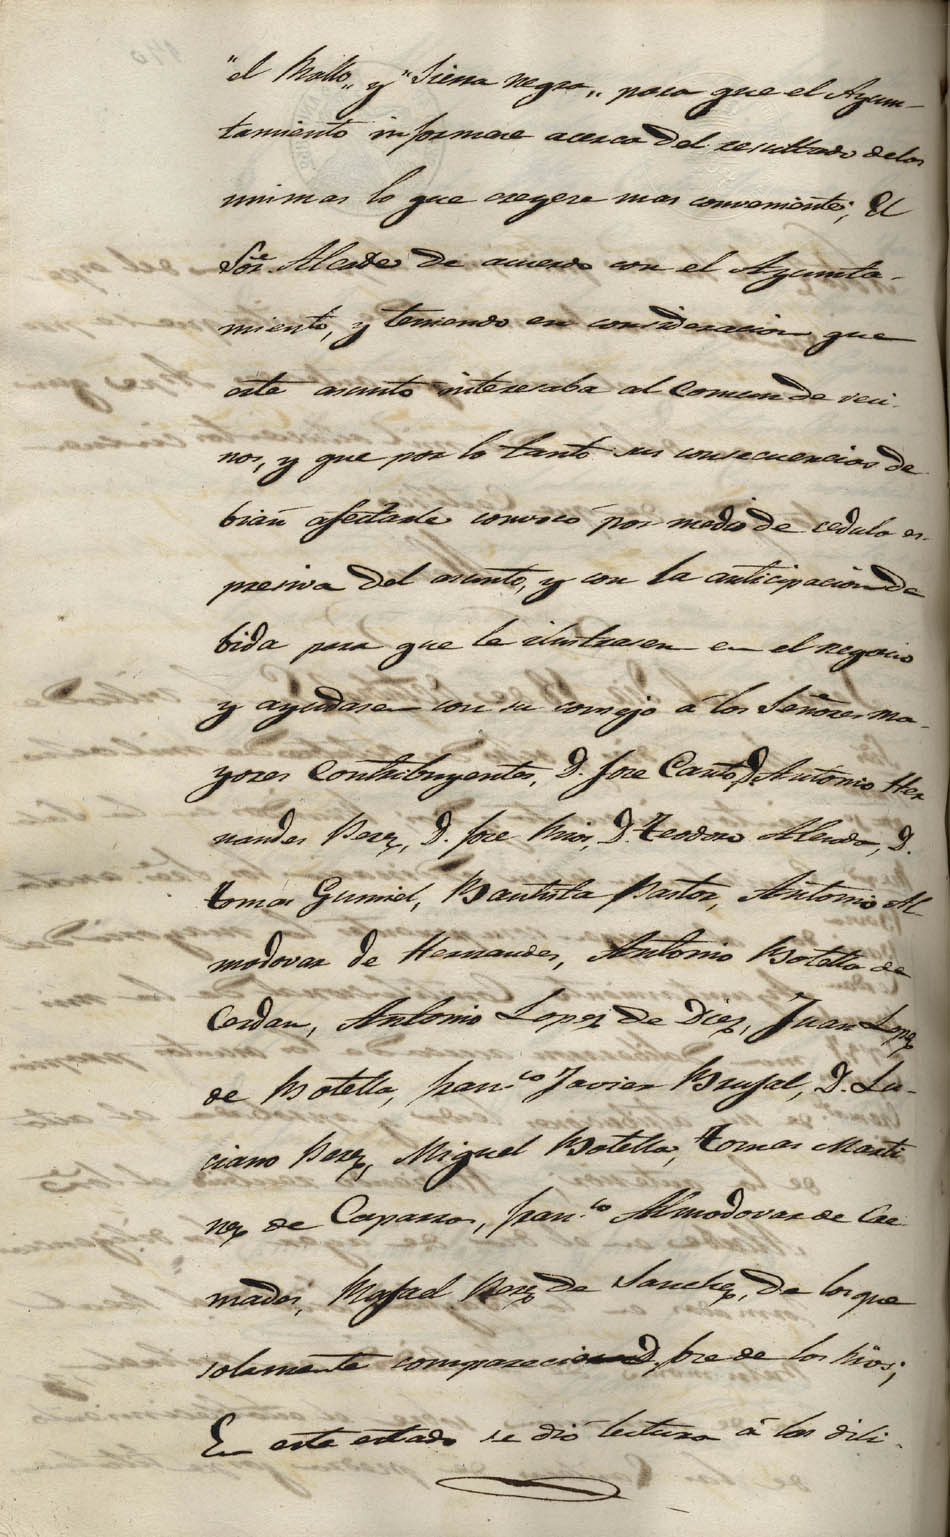 "el Mallo" y "Sierra negra" para que el Ayun-
tamiento informare acerca del resultado delas
mismas lo que creyere mas conveniente; El
Sor. Alcalde de acuerdo con el Ayunta-
miento, y teniendo en consideracion que
este asunto interesaba al Comun de veci-
nos, y que por lo tanto sus consecuencias de
bian afectarle convocó por medio de cedula es-
presiva del asunto, y con la anticipación de
bida para que le ilustrasen en el negocio
y ayudasen con su consejo á los Señores ma-
yores Contribuyentes, D. Jose Canto, D. Antonio Her
nandes Perez, D. Jose Rios, D. Teodoro Alenda, D.
Tomas Gumiel, Bautista Pastor, Antonio Al
modovar de Hernandes, Antonio Botella de
Cerdan, Antonio Lopez de Diez, Juan Lopez
de Botella, Fran.co Javier Brufal, D. Lu-
ciano Perez, Miguel Botella, Tomas Marti
nez de Caparros, Fran.co Almodovar de Cre
mades, Rafael Perez de Sanchez, de los que
solamente comparecio D. Jose de los Rios;
En este estado se dió lectura á las dili-